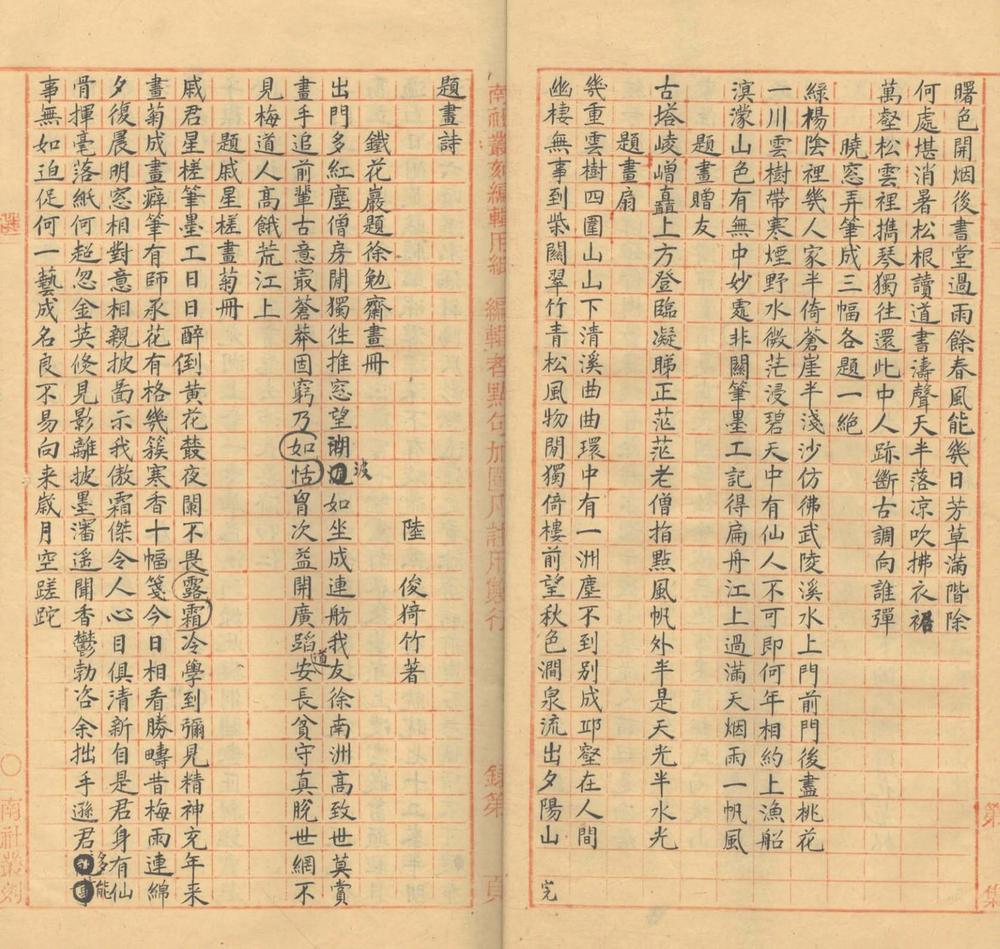 曙色開烟後書堂過雨餘春風能幾日芳草滿階除
何處堪消暑松根讀道書濤聲天半落凉吹拂衣裾
萬壑松雲裡携琴獨往還此中人跡斷古調向誰彈
曉窓弄筆成三幅各題一絕
綠楊陰裡幾人家半倚蒼崖半淺沙仿彿武陵溪水上門前門後盡桃花
一川雲樹帶寒煙野水微茫浸碧天中有仙人不可即何年相約上漁船
溟濛山色有無中妙處非關筆墨工記得扁舟江上過滿天烟雨一帆風
題畫贈友
古塔崚嶒矗上方登臨凝睇正茫茫老僧指點風帆外半是天光半水光
題畫扇
幾重雲樹四圍山山下清溪曲曲環中有一洲塵不到別成邱壑在人間
幽棲無事到柴關翠竹青松風物閒獨倚樓前望秋色澗泉流出夕陽山
完
第
集
南社叢刻編輯用紙
編輯者點句加圈凡註用雙行
錄第
頁
題畫詩
陸俊猗竹著
鐵花巖題徐勉齋畫冊
出門多紅塵僧房閒獨徃推窓望湖波如坐成連舫我友徐南洲高致世莫賞
畫手追前輩古意㝡蒼莽固窮乃如恬胷次益開廣蹈道安長貧守真脫世網不
見梅道人高餓荒江上
題戚星槎畫菊冊
戚君星槎筆墨工日日醉倒黄花叢夜闌不畏露霜冷學到彌見精神充年来
畫菊成畫癖筆有師承花有格幾簇寒香十幅箋今日相看勝疇昔梅雨連綿
夕復晨明窓相對意相親披啚示我傲霜傑令人心目俱清新自是君身有仙
骨揮毫落紙何超忽金英倏見影離披墨瀋遥聞香鬱勃咨余拙手遜君多能
事無如迫促何一藝成名良不易向来歲月空蹉跎
選
○
南社叢刻